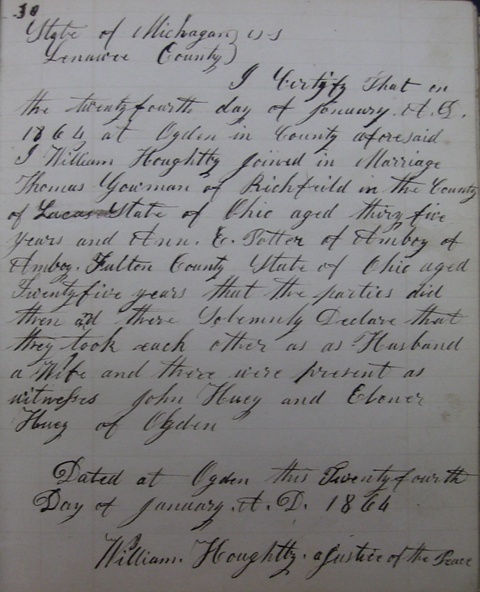 30
State of Michagan) s-s
Lenawee County)
I Certify That on
the twentyfourth day of January. A.D.
1864 at Ogden in County aforesaid
I William Houghtby Joined in Marriage
Thomas Gowman of Richfield in the County
of Lucas State of Ohio aged thirty five
years and Ann. E. Potter of Amboy of
Amboy. Fulton County State of Ohio aged
Twentyfive years that the parties did
then and there Solemnly Declare that
they took each other as as Husband
a Wife and there were present as
witnesses John Huey and Eboner
Huey of Ogden
Dated at Ogden this Twentyfourth
Day of January. A. D. 1864
William. Houghtby. a Justice of the Peace